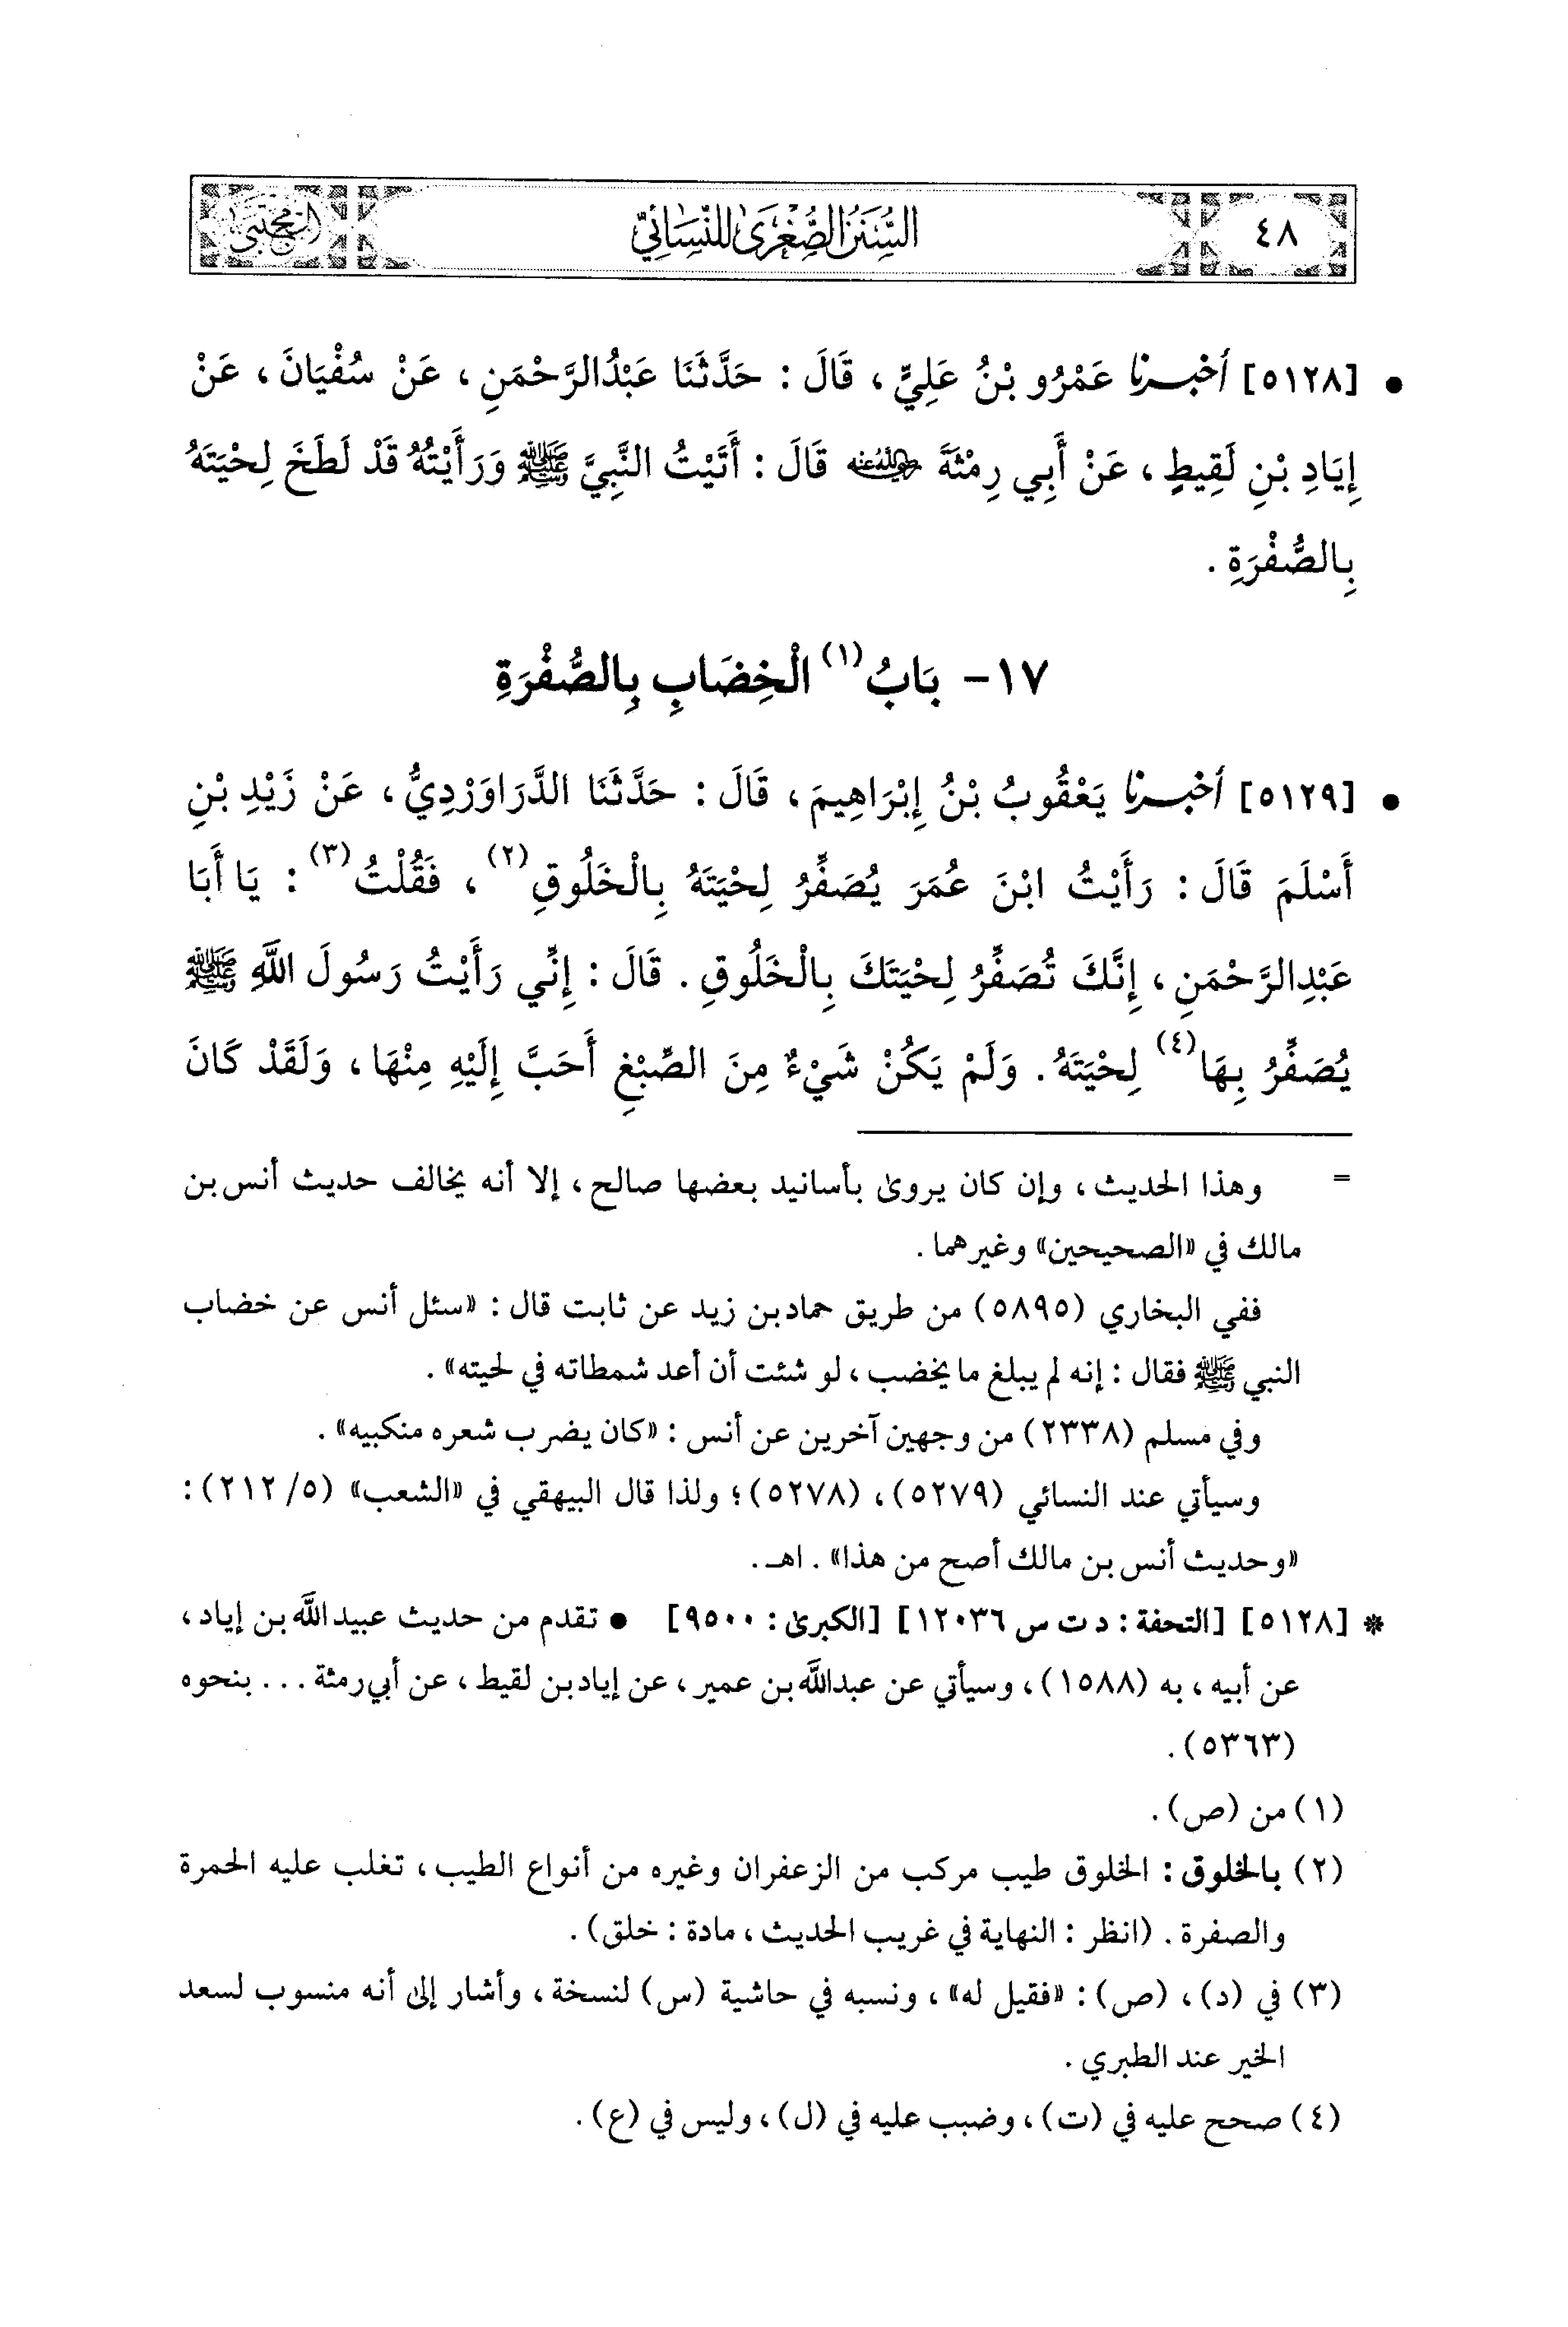 ٤٨
السُّنَنُ الصُّغْرَىٰ لِلنَّسَائِيِّ
المجتبى
• [٥١٢٨] أخبرنا عَمْرُو بْنُ عَلِيٍّ ، قَالَ : حَدَّثَنَا عَبْدُ الرَّحْمَنِ ، عَنْ سُفْيَانَ ، عَنْ
إِيَادِ بْنِ لَقِيطٍ ، عَنْ أَبِي رِمْثَةَ رضي الله عنه قَالَ : أَتَيْتُ النَّبِيَّ ﷺ وَرَأَيْتُهُ قَدْ لَطَخَ لِحْيَتَهُ
بِالصُّفْرَةِ .
١٧- بَابُ (١) الْخِضَابِ بِالصُّفْرَةِ
• [٥١٢٩] أخبرنا يَعْقُوبُ بْنُ إِبْرَاهِيمَ ، قَالَ : حَدَّثَنَا الدَّرَاوَرْدِيُّ ، عَنْ زَيْدِ بْنِ
أَسْلَمَ قَالَ : رَأَيْتُ ابْنَ عُمَرَ يُصَفِّرُ لِحْيَتَهُ بِالْخَلُوقِ (٢) ، فَقُلْتُ (٣) : يَا أَبَا
عَبْدِ الرَّحْمَنِ ، إِنَّكَ تُصَفِّرُ لِحْيَتَكَ بِالْخَلُوقِ . قَالَ : إِنِّي رَأَيْتُ رَسُولَ اللَّهِ ﷺ
يُصَفِّرُ بِهَا (٤) لِحْيَتَهُ . وَلَمْ يَكُنْ شَيْءٌ مِنَ الصِّبْغِ أَحَبَّ إِلَيْهِ مِنْهَا ، وَلَقَدْ كَانَ
= وهذا الحديث ، وإن كان يروىٰ بأسانيد بعضها صالح ، إلا أنه يخالف حديث أنس بن
مالك في «الصحيحين» وغيرهما .
ففي البخاري (٥٨٩٥) من طريق حماد بن زيد عن ثابت قال : «سئل أنس عن خضاب
النبي ﷺ فقال : إنه لم يبلغ ما يخضب ، لو شئت أن أعد شمطاته في لحيته» .
وفي مسلم (٢٣٣٨) من وجهين آخرين عن أنس : «كان يضرب شعره منكبيه» .
وسيأتي عند النسائي (٥٢٧٩) ، (٥٢٧٨) ؛ ولذا قال البيهقي في «الشعب» (٥/ ٢١٢) :
«وحديث أنس بن مالك أصح من هذا» . اهـ .
* [٥١٢٨] [التحفة : د ت س ١٢٠٣٦] [الكبرىٰ : ٩٥٠٠] • تقدم من حديث عبيد اللَّه بن إياد ،
عن أبيه ، به (١٥٨٨) ، وسيأتي عن عبد اللَّه بن عمير ، عن إياد بن لقيط ، عن أبي رمثة ... بنحوه
(٥٣٦٣) .
(١) من (ص) .
(٢) بالخلوق : الخلوق طيب مركب من الزعفران وغيره من أنواع الطيب ، تغلب عليه الحمرة
والصفرة . (انظر : النهاية في غريب الحديث ، مادة : خلق) .
(٣) في (د) ، (ص) : «فقيل له» ، ونسبه في حاشية (س) لنسخة ، وأشار إلىٰ أنه منسوب لسعد
الخير عند الطبري .
(٤) صحح عليه في (ت) ، وضبب عليه في (ل) ، وليس في (ع) .